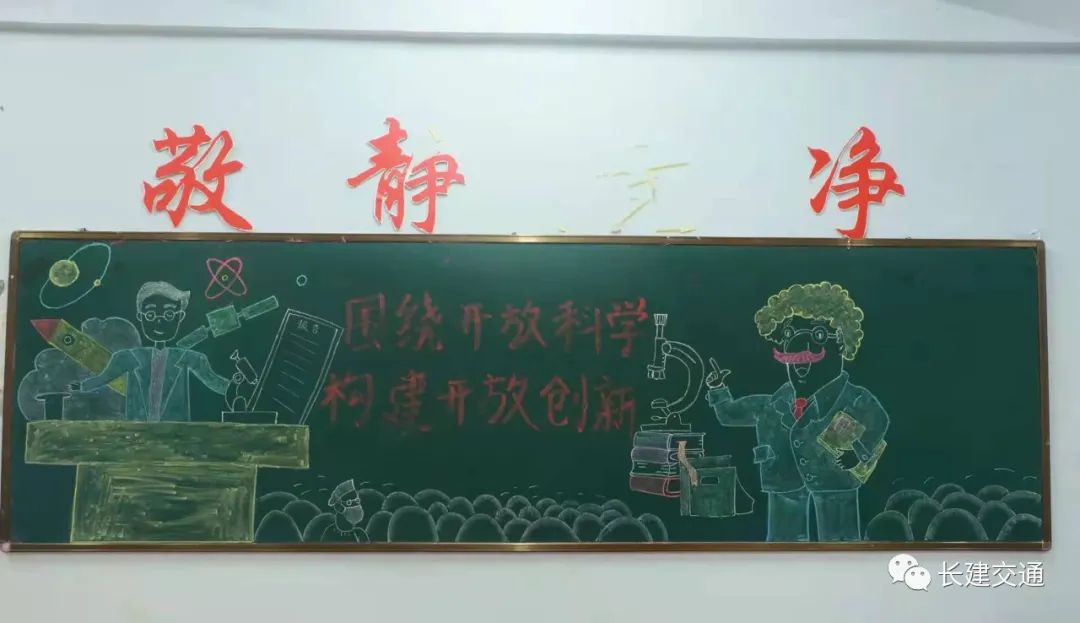 敬 静 净
报告
围绕开放科学
构建开放创新
长建交通